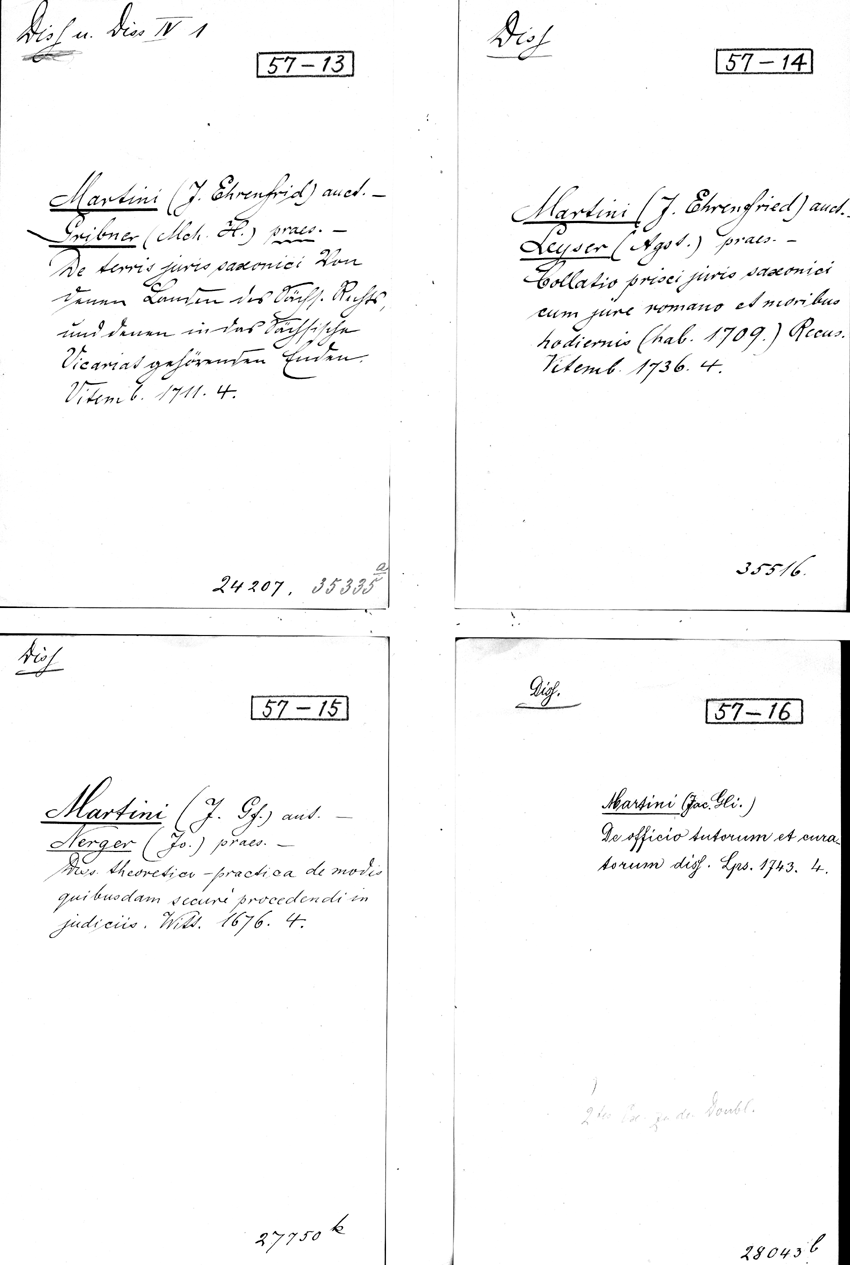 Diss u. Diss IV 1
57-13
Martini (J. Ehrenfrid) auct. —
Gribner (Mch. H.) praes. —
De terris juris saxonici Von
denen Landen des Sächs. Rechts,
und denen in das Sächsische
Vicariat gehörenden Enden.
Vitemb. 1711. 4.
24207. 35335a
Diss
57-14
Martini (J. Ehrengfried) auct.
Leyser (Agst.) praes. —
Collatio prisci juris saxonici
cum jure romano et moribus
hodiernis (hab. 1709.) Recus.
Vitemb. 1736. 4.
35516.
Diss
57-15
Martini (J. Gf.) aut. —
Nerger (Jo.) praes. —
Diss. theoretico-practica de modis
quibusdam securè procedendi in
judiciis. Witt. 1676. 4.
27750 k
Diss.
57-16
Martini (Jac. Gli.)
De officio tutorum et cura-
torum diss. Lps. 1743. 4.
2tes Ex. in der Doubl.
28043 b